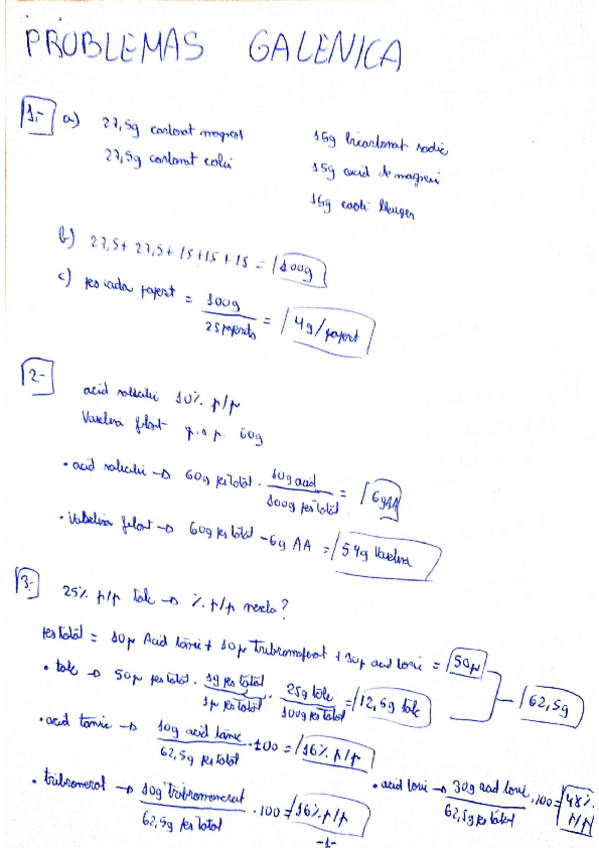 PROBLEMAS GALENICA
1.- a) 27,5g carbonat magnesi
27,5g carbonat calci
15g bicarbonat sodic
15g oxid de magnesi
15g
b) 27,5 + 27,5 + 15 + 15 + 15 = 100g
c) pes cada paperet = 100g / 25 paperets = 4g/paperet
2-
acid salicilic 10% p/p
Vaselina filant q.s.p. 60g
• acid salicilic → 60g pes total · 10g acid / 100g pes total = 6g AA
• Vaselina filant → 60g pes total - 6g AA = 54g Vaselina
3-
25% p/p talc → % p/p mescla?
pes total = 10p Acid tànic + 10p + 30p acid boric = 50p
• talc → 50p pes total · 1g pes total / 1p pes total · 25g talc / 100g pes total = 12,5g talc
62,5g
• acid tanic → 10g acid tànic / 62,5g pes total · 100 = 16% p/p
• → 10g / 62,5g pes total · 100 = 16% p/p
• acid boric → 30g acid boric / 62,5g pes total · 100 = 48% p/p
-1-